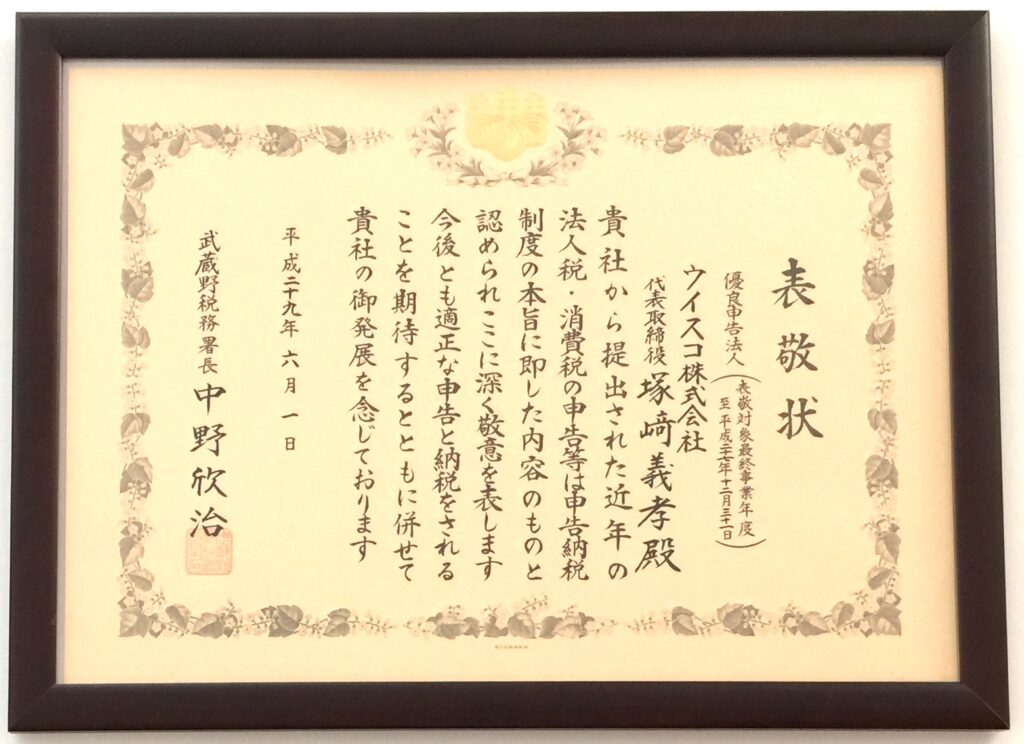 表敬状
優良申告法人（表敬対象最終事業年度
至平成二十七年十二月三十一日）
ウイスコ株式会社
代表取締役 塚﨑義孝殿
貴社から提出された近年の
法人税・消費税の申告等は申告納税
制度の本旨に即した内容のものと
認められここに深く敬意を表します
今後とも適正な申告と納税をされる
ことを期待するとともに併せて
貴社の御発展を念じております
平成二十九年六月一日
武蔵野税務署長 中野欣治